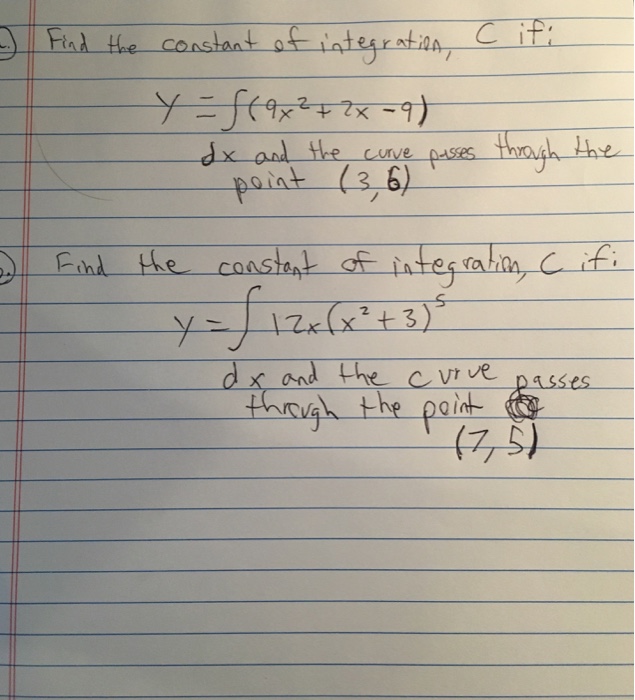 1. Find the constant of integration, C if:
y = ∫(9x² + 2x - 9)
dx and the curve passes through the
point (3,6)
2. Find the constant of integration, C if:
y = ∫ 12x(x² + 3)⁵
dx and the curve passes
through the point
(7,5)